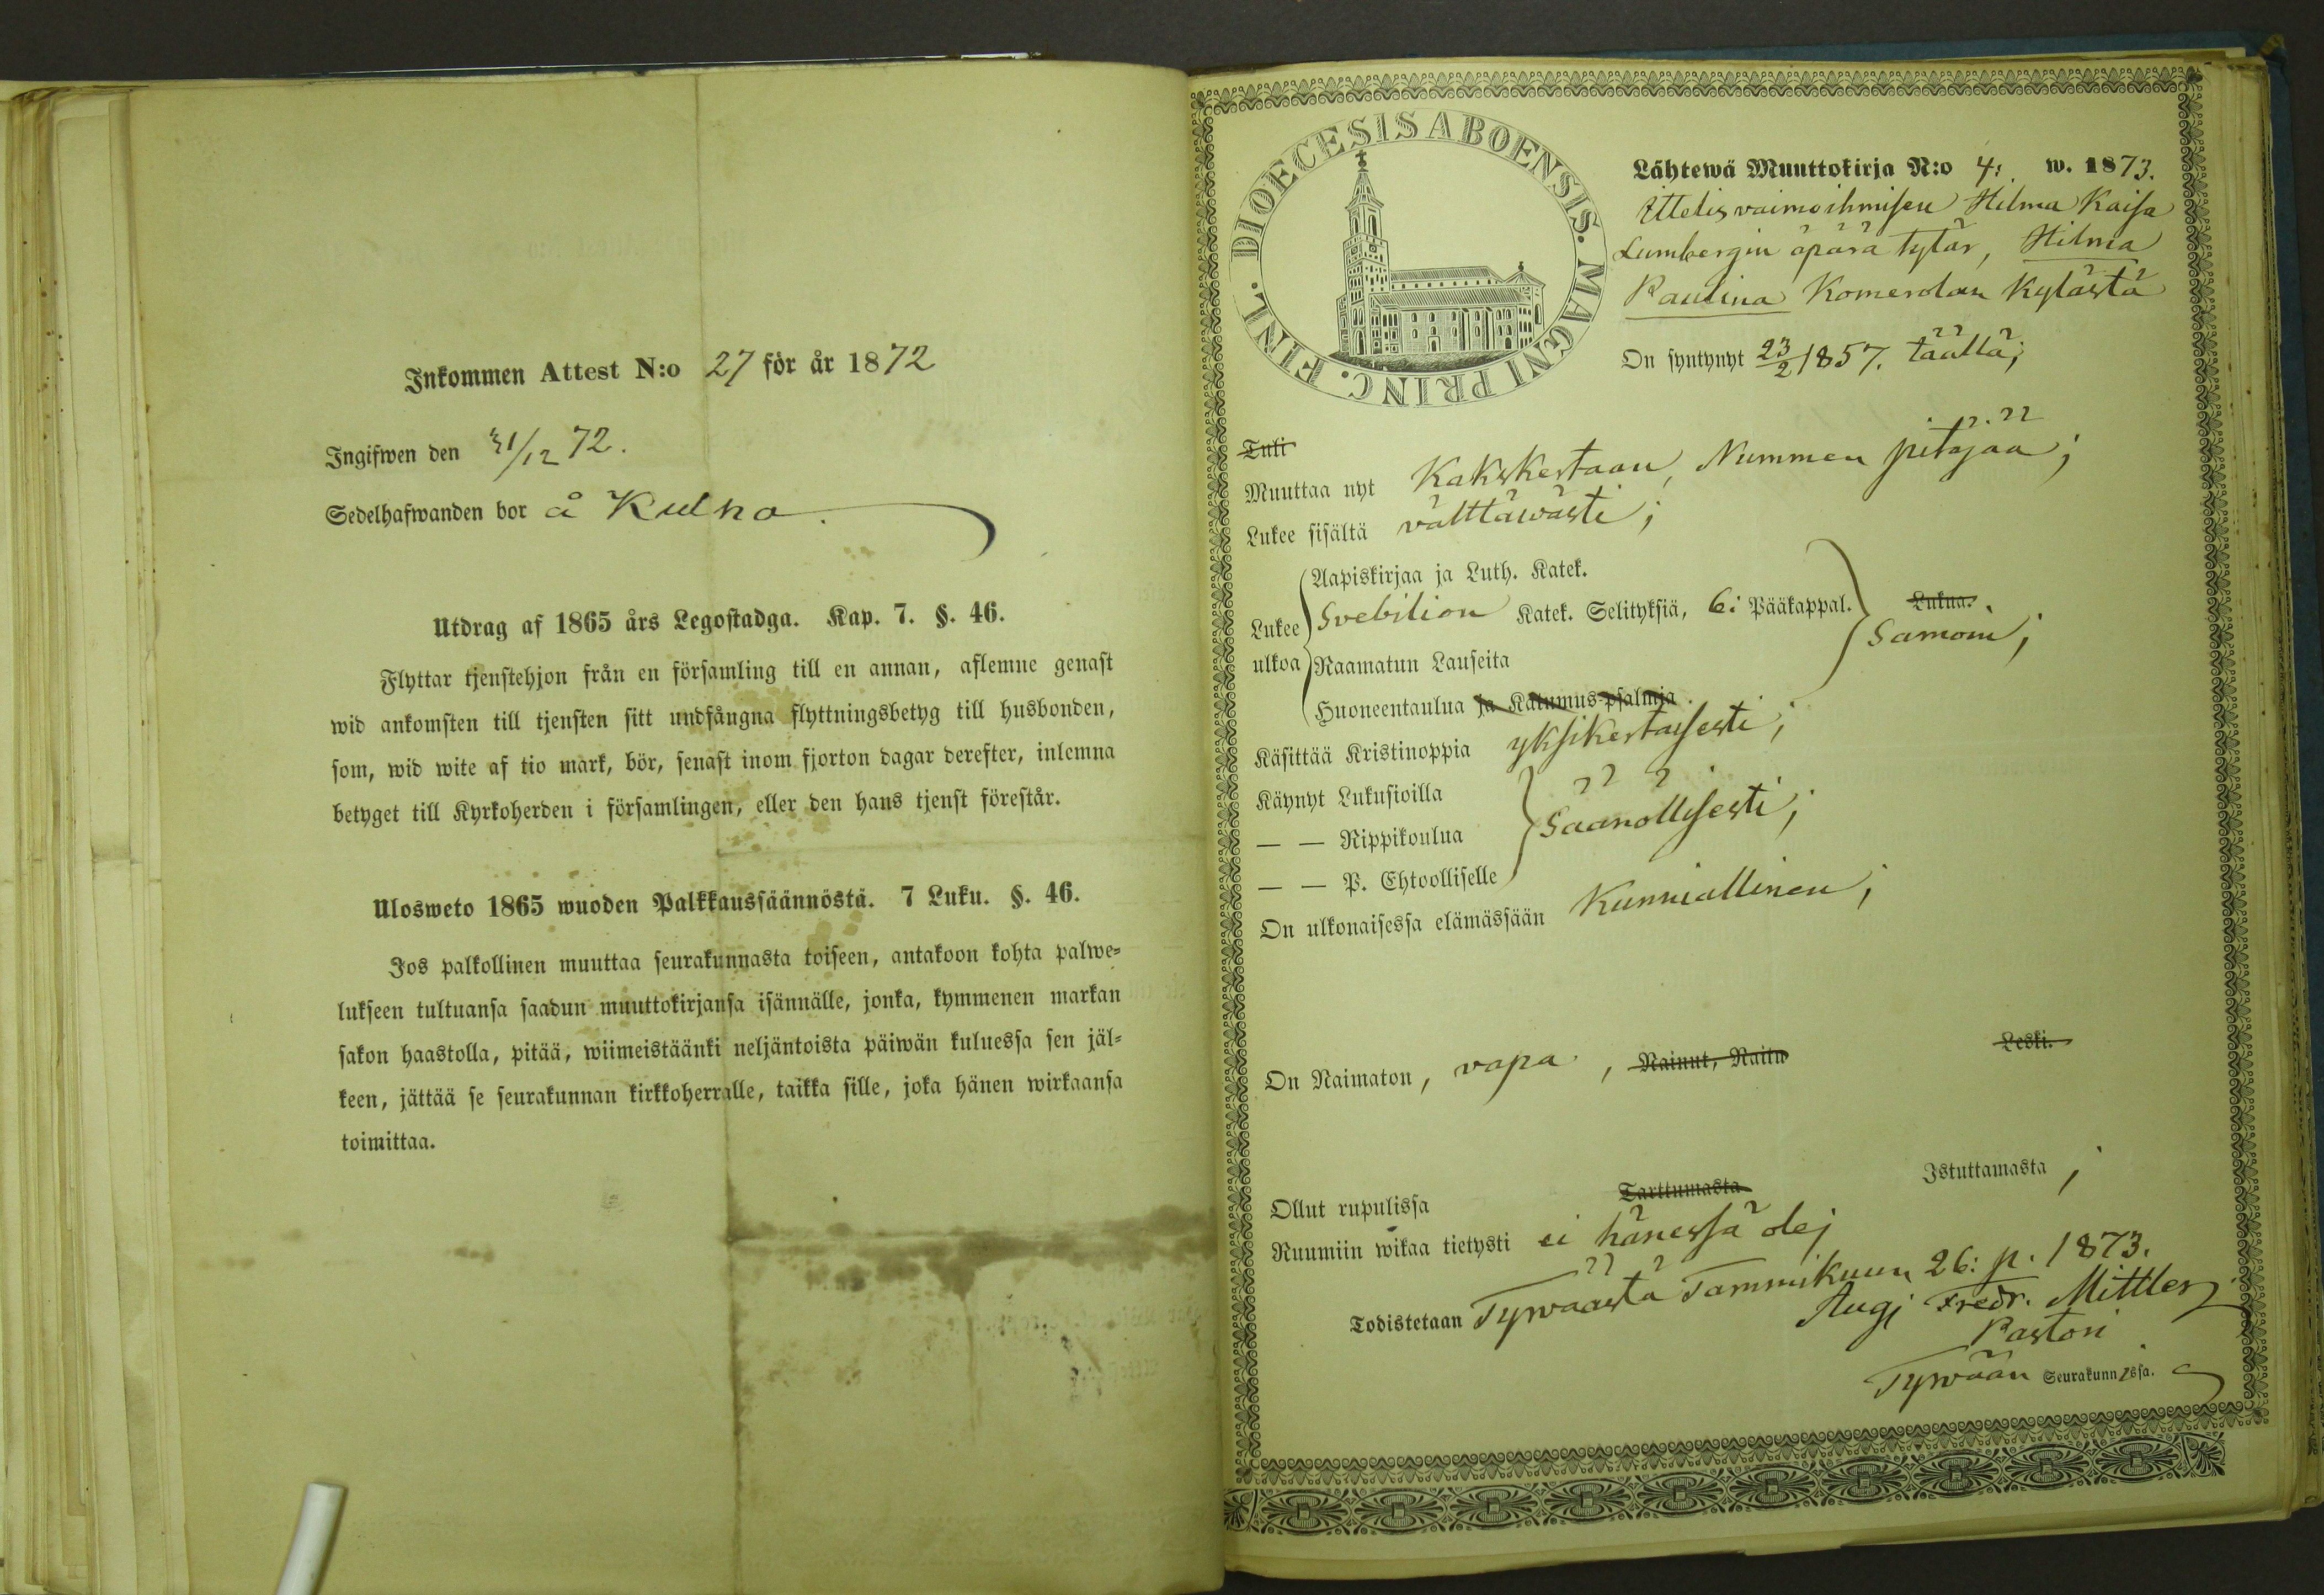 Inkommen Attest N:o 27 för år 1872
Ingifwen den 31/12 72.
Sedelhafwanden bor å Kulho
Utdrag af 1865 års Legostadga. Kap. 7. §. 46.
Flyttar tjenstehjon från en församling till en annan, aflemne genast
wid ankomsten till tjensten sitt undfångna flyttningsbetyg till husbonden,
som, wid wite af tio mark, bör, senast inom fjorton dagar derefter, inlemna
betyget till Kyrkoherden i församlingen, eller den hans tjenst förestår.
Ulosweto 1865 wuoden Palkkaussäännöstä. 7 Luku. §. 46.
Jos palkollinen muuttaa seurakunnasta toiseen, antakoon kohta palwe=
lukseen tultuansa saadun muuttokirjansa isännälle, jonka, kymmenen markan
sakon haastolla, pitää, wiimeistäänki neljäntoista päiwän kuluessa sen jäl=
keen, jättää se seurakunnan kirkkoherralle, taikka sille, joka hänen wirkaansa
toimittaa.
DIOECESIS ABOENSIS. MAGNI PRINC. FINL.
Lähtewä Muuttokirja N:o 4: w. 1873.
Ittelisvaimoihmisen Hilma Kaisa
Lumbergin äpärä tytär, Hilma
Paulina Komerolan Kylästä
On syntynyt 23/2 1857. täällä;
Tuli
Muuttaa nyt Kakskertaan, Nummen pitäjää;
Lukee sisältä välttäwästi;
Aapiskirjaa ja Luth. Katek.
Lukee ulkoa Svebilion Katek. Selityksiä, 6: Pääkappal. Lukua. Samoin;
Raamatun Lauseita
Huoneentaulua ja Katumus-psalmja
Käsittää Kristinoppia yksikertaisesti;
Käynyt Lukusioilla
— — Rippikoulua Säänöllisesti;
— — P. Ehtoolliselle
On ulkonaisessa elämässään Kunniallinen;
On Naimaton, vapa, Nainut, Naitu Leski.
Ollut rupulissa Tarttumasta Istuttamasta;
Ruumiin wikaa tietysti ei hänessä ole;
Todistetaan Tyrwäästä Tammikuun 26: p. 1873.
Aug: Fredr. Mittler
Pastori
Tyrwään Seurakunnassa.